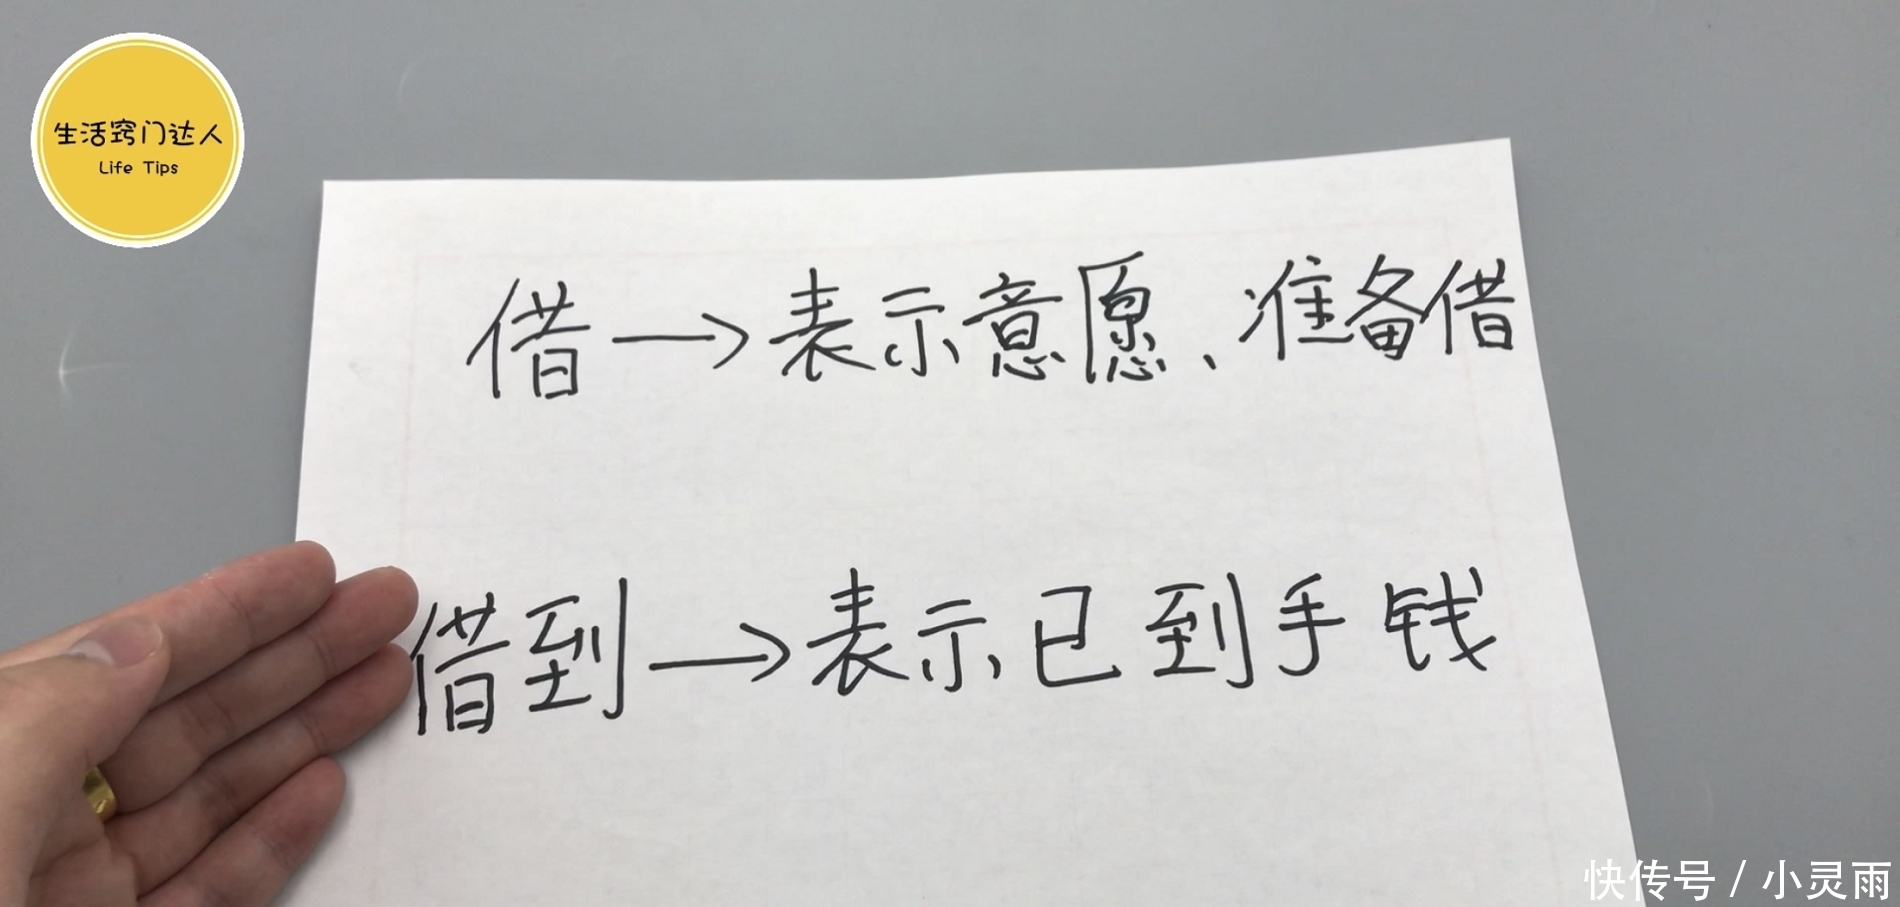 生活窍门达人
Life Tips
借→表示意愿、准备借
借到→表示已到手钱
快传号/小灵雨